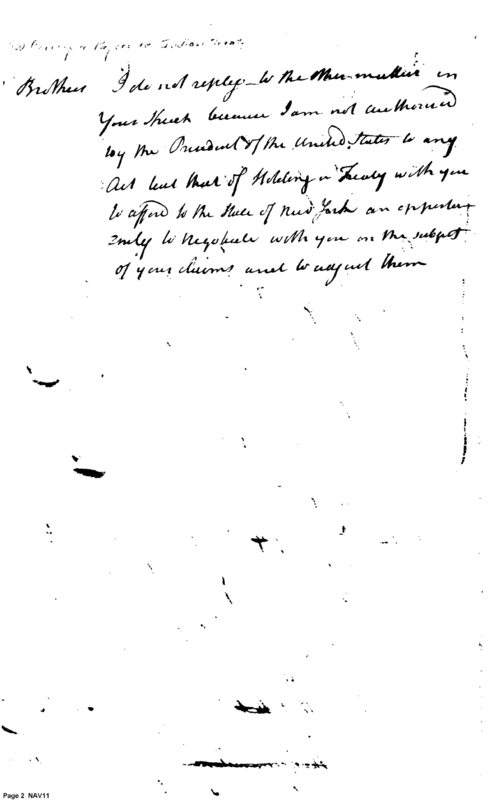 Brothers I do not reply to the other matters in
Your Speech because I am not authorised
by the President of the United States to any
Act but that of Holding a Treaty with you
to afford to the State of New York an opportu
nity to Negotiate with you on the subject
of your claims and to adjust them
Page 2 NAV11